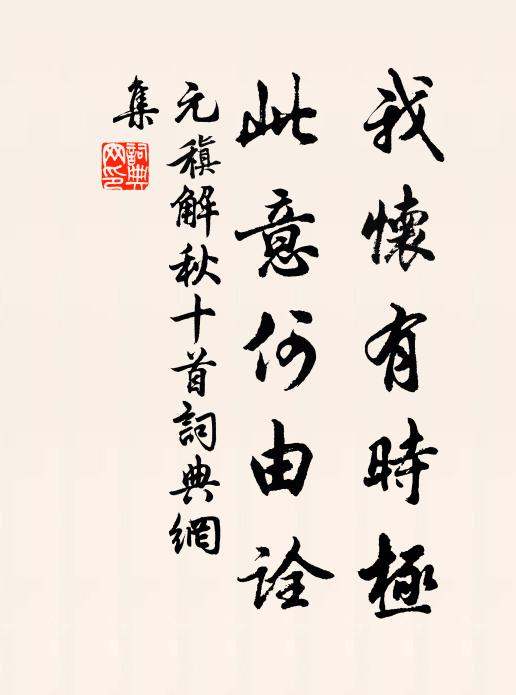 我懷有時極
此意何由詮
元稹解秋十首詞典網
集
詞典網印